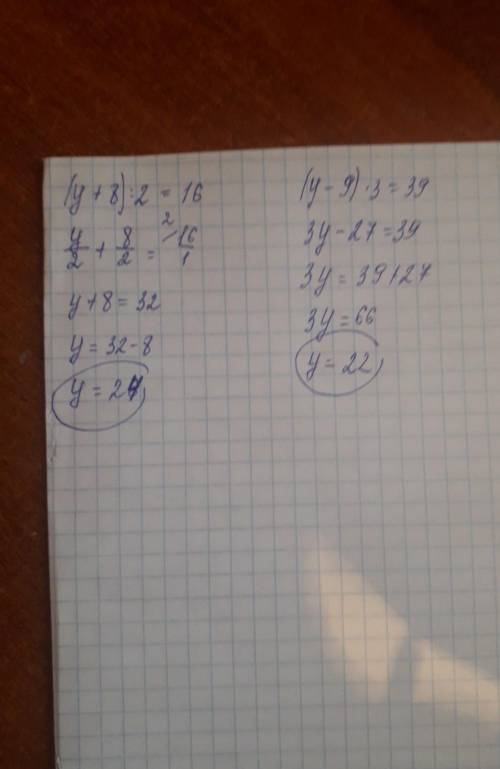 (y + 8) : 2 = 16
y/2 + 8/2 = 2/ 16/1
y + 8 = 32
y = 32 - 8
y = 24
(y - 9) · 3 = 39
3y - 27 = 39
3y = 39 + 27
3y = 66
y = 22